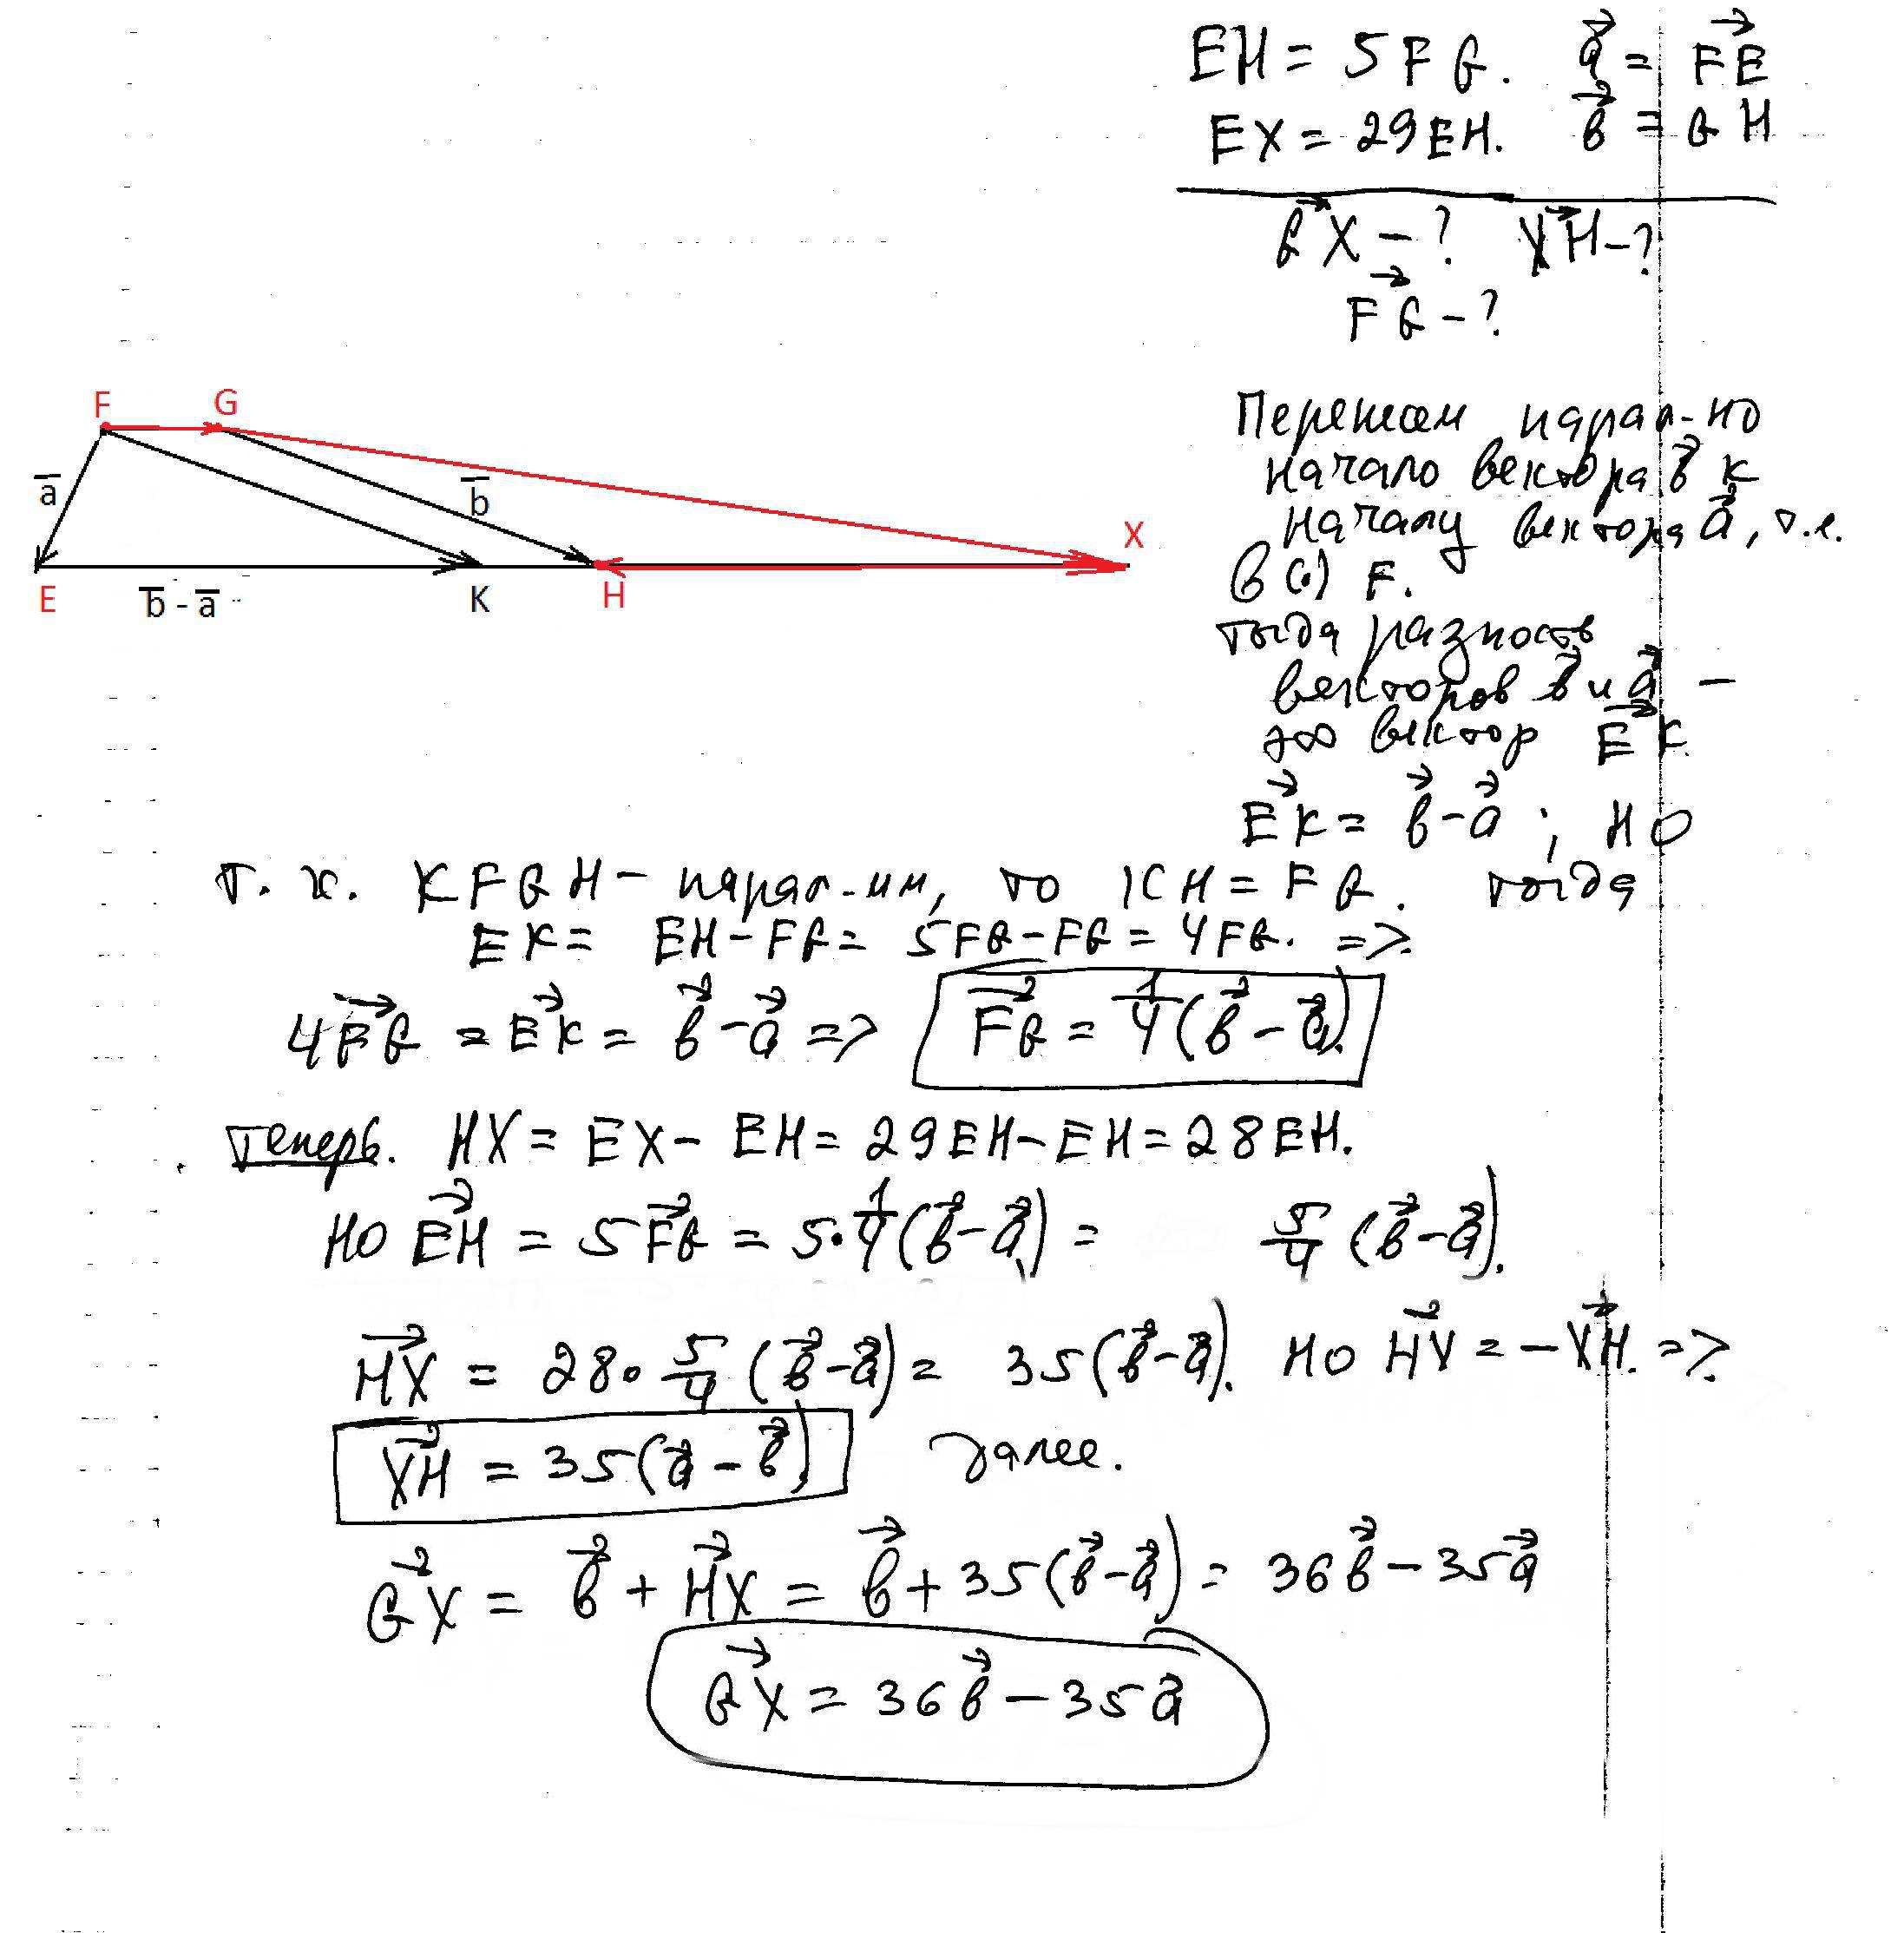 EH = 5FG. a⃗ = F⃗E
EX = 29EH. b⃗ = GH
G⃗X - ? X⃗H - ?
F⃗G - ?
F G
a̅ b̅ X
E b̅ - a̅ K H
Перенесем парал-но
начало вектора b⃗ к
началу вектора a⃗, т.е.
в (·) F.
тогда разность
векторов b⃗ и a⃗ -
это вектор E⃗K
E⃗K = b⃗ - a⃗ ; но
т. к. KFGH - парал-мм, то KH = FG. тогда
EK = EH - FG = 5FG - FG = 4FG. =>
4F⃗G = E⃗K = b⃗ - a⃗ => F⃗G = 1/4 (b⃗ - a⃗).
Теперь. HX = EX - EH = 29EH - EH = 28EH.
но E⃗H = 5F⃗G = 5·1/4 (b⃗ - a⃗) = 5/4 (b⃗ - a⃗).
H⃗X = 28 · 5/4 (b⃗ - a⃗) = 35(b⃗ - a⃗). но H⃗X = -X⃗H. =>
X⃗H = 35(a⃗ - b⃗) далее.
G⃗X = b⃗ + H⃗X = b⃗ + 35(b⃗ - a⃗) = 36b⃗ - 35a⃗
G⃗X = 36b⃗ - 35a⃗